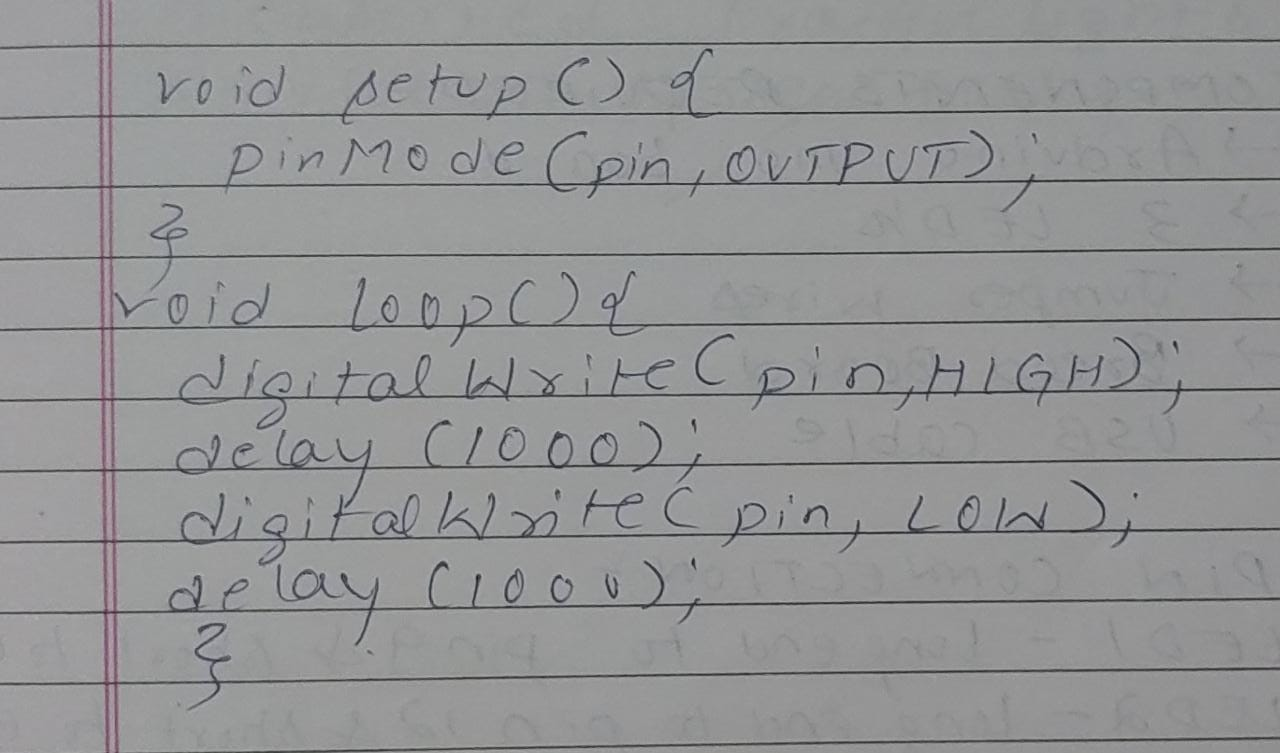 void setup() {
pinMode(pin, OUTPUT);
}
void loop() {
digitalWrite(pin, HIGH);
delay (1000);
digitalWrite(pin, LOW);
delay (1000);
}